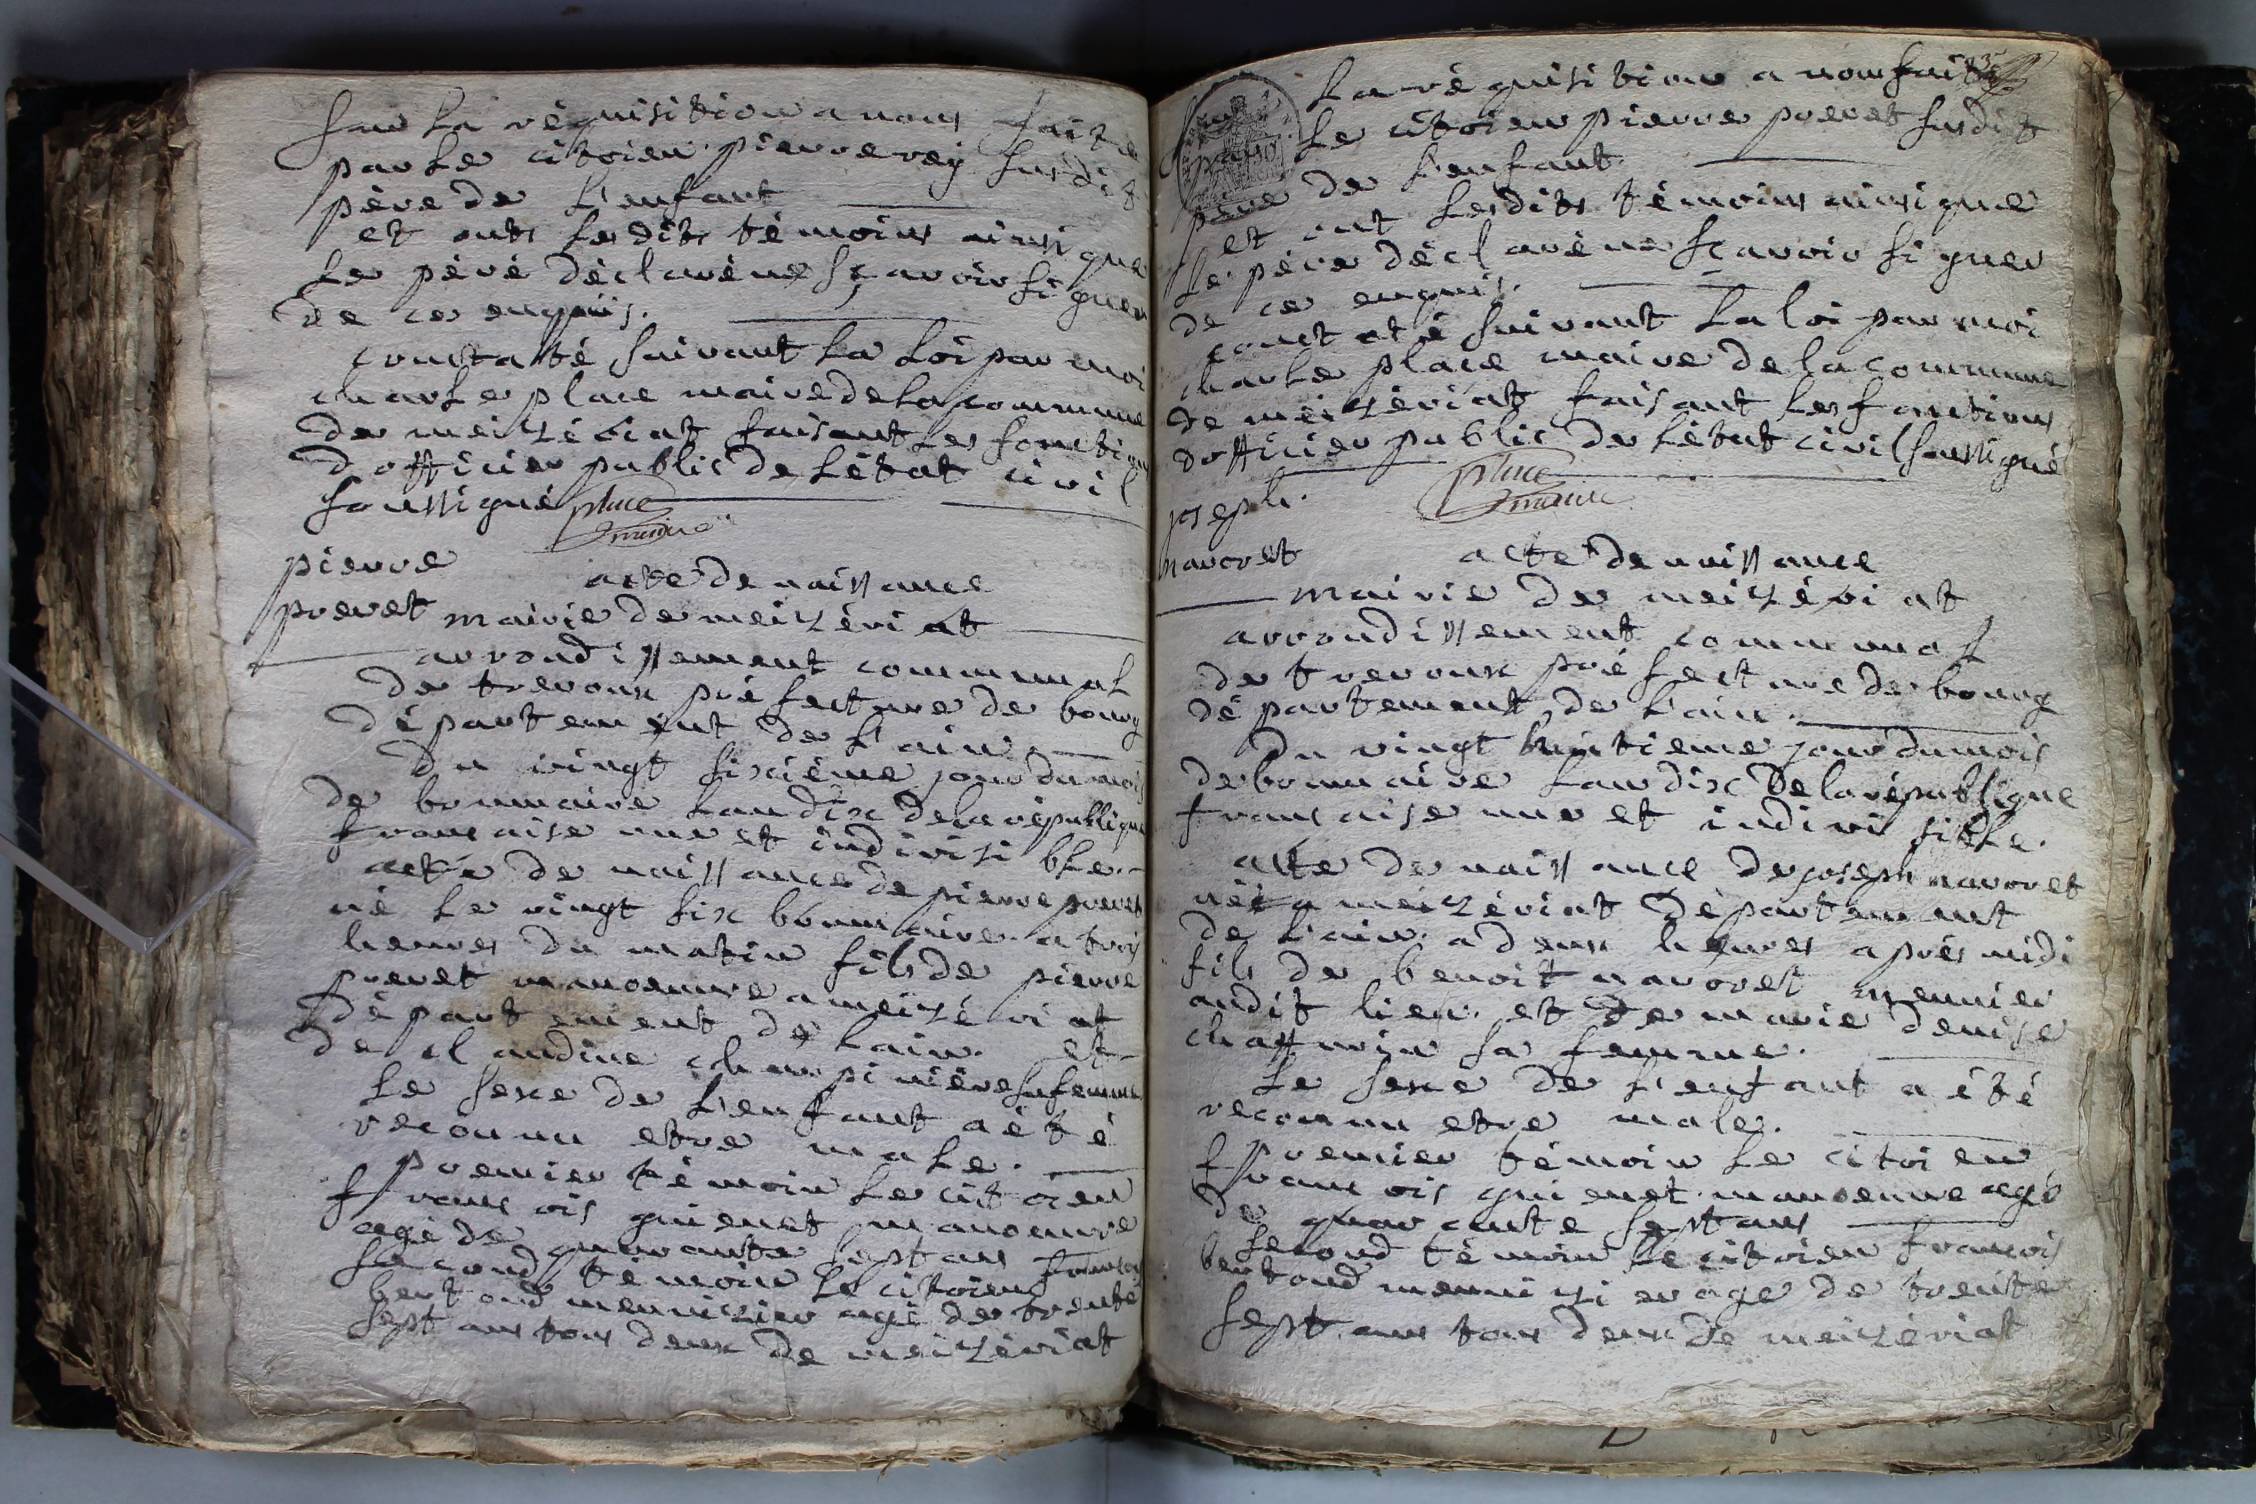 Sur La réquisition a nous faite
par Le citoien pierre rey susdit
père de L'enfant
et ont Lesdits témoins ainsi que
Le péré déclaré ne sçavoir signer
de ce enquis.
constaté suivant La Loi par moi
charle place maire de La commune
de meizériat faisant Les fonctions
dofficier public de Létat civil
soussigné place
maire
pierre
preret
acte de naissance
mairie de meizériat
arrondissement communal
de trevoux préfecture de bourg
département de L'ain
Du vingt sixiéme jour du mois
de brumaire Lan dix de la république
francaise une et indivisible.
acte de naissance de pierre preret
né Le vingt six brumaire a trois
heures du matin fils de pierre
preret manoeuvre a meizériat
département de Lain. et
de claudine charpiniére sa femme
Le sexe de L'enfant a été
reconnu etre male.
premier témoin Le citoien
francois guienet manoeuvre
agé de quarante sept ans
second témoin Le citoien francois
bertoud menuizier agé de trente
sept ans tous deux de meizériat
La réquisition a nous faite
par Le citoien pierre preret susdit
père de L'enfant
et ont Lesdits témoins ainsi que
Le père déclaré ne sçavoir signer
de ce enquis.
constaté suivant La loi par moi
charle place maire de la commune
de meizériat faisant Les fonctions
dofficier public de Létat civil soussigné
place
maire
joseph
navoret
acte de naissance
mairie de meizériat
arrondissement communal
de trevoux préfecture de bourg
département de L'ain.
Du vingt huitieme jour du mois
de brumaire Lan dix De la république
francaise une et indivisible.
acte de naissance de joseph navoret
né a meizériat Département
de L'ain. a deux heures après midi
fils de benoit navoret meunier
audit lieu. et de marie denise
chaffroin sa femme.
Le sexe de L'enfant a été
reconnu etre male.
premier témoin Le citoien
francois guienet manoeuvre agé
de quarante sept ans
second témoin Le citoien francois
bertoud menuizier agé de trente
sept ans tous deux de meizériat